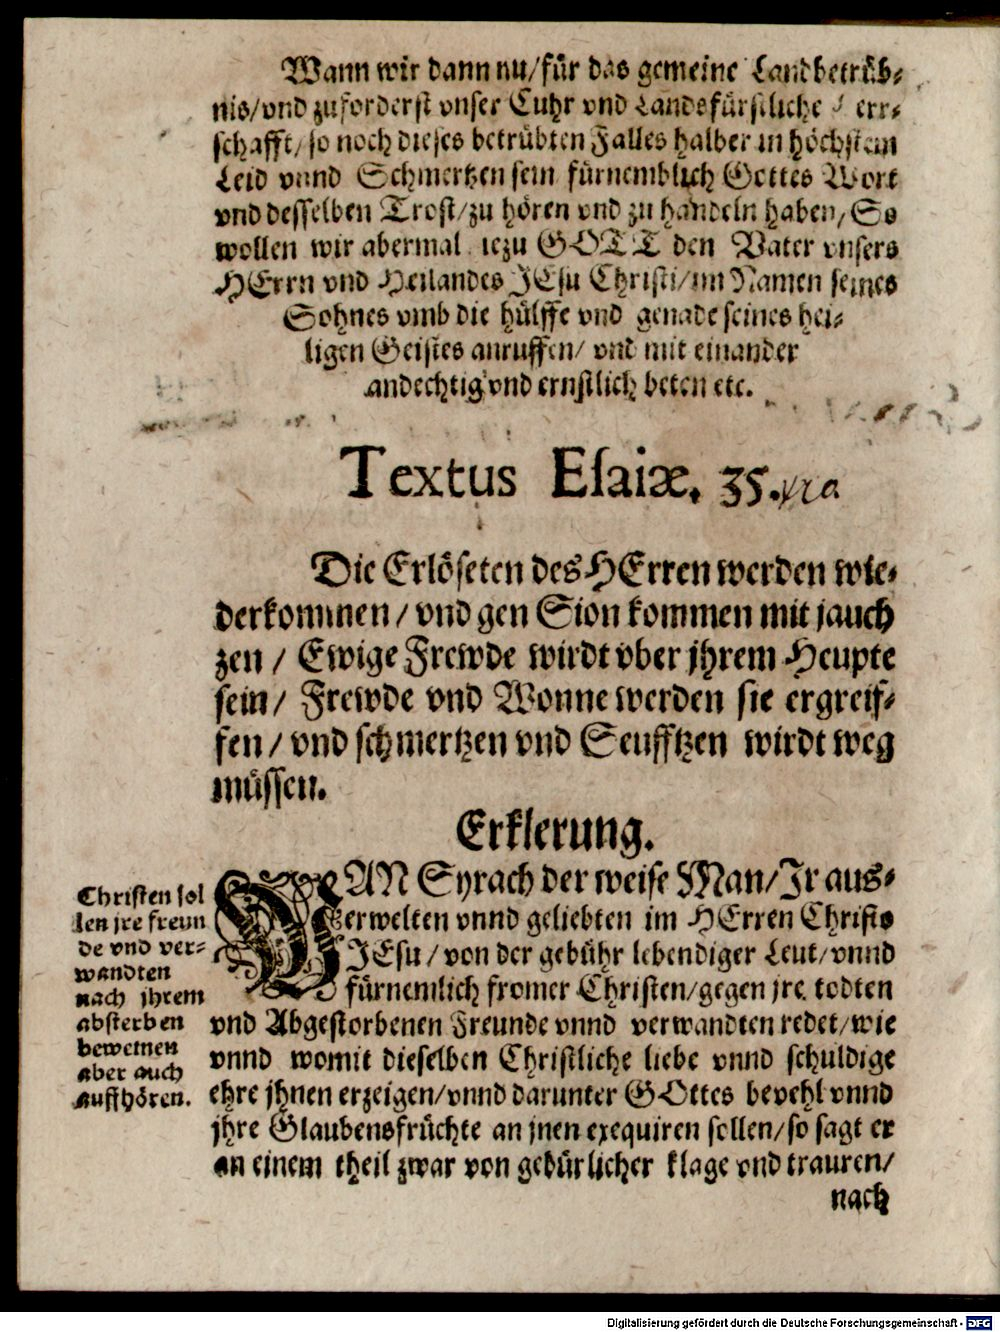 Wann wir dann nu/für das gemeine Landbetrüb-
nis/vnd zuforderst vnser Cuhr vnd Landsfürstliche Herr-
schafft/so noch dieses betrübten Falles halber in höchstem
Leid vnnd Schmertzen sein fürnemblich Gottes Wort
vnd desselben Trost/zu hören vnd zu handeln haben/So
wollen wir abermal iezu GOTT den Vater vnsers
HErrn vnd Heilandes JEsu Christi/im Namen seines
Sohnes vmb die hülffe vnd genade seines hei-
ligen Geistes anruffen/ vnd mit einander
andechtig vnd ernstlich beten etc.
Textus Esaiæ. 35.
Die Erlöseten des HErren werden wie-
derkommen / vnd gen Sion kommen mit jauch
zen / Ewige Frewde wirdt vber jhrem Heupte
sein/ Frewde vnd Wonne werden sie ergreif-
fen / vnd schmertzen vnd Seufftzen wirdt weg
müssen.
Erklerung.
WAN Syrach der weise Man/Jr aus-
erwelten vnnd geliebten im HErren Christo
JEsu / von der gebühr lebendiger Leut/vnnd
fürnemlich fromer Christen/gegen jre todten
vnd Abgestorbenen Freunde vnnd verwandten redet/wie
vnnd womit dieselben Christliche liebe vnnd schuldige
ehre jhnen erzeigen/vnnd darunter GOttes bevehl vnnd
jhre Glaubensfrüchte an jnen exequiren sollen/so sagt er
an einem theil zwar von gebürlicher klage vnd trauren/
nach
Christen sol
len jre freun
de vnd ver-
wandten
nach jhrem
absterben
beweinen
aber auch
auffhören.
Digitalisierung gefördert durch die Deutsche Forschungsgemeinschaft - DFG